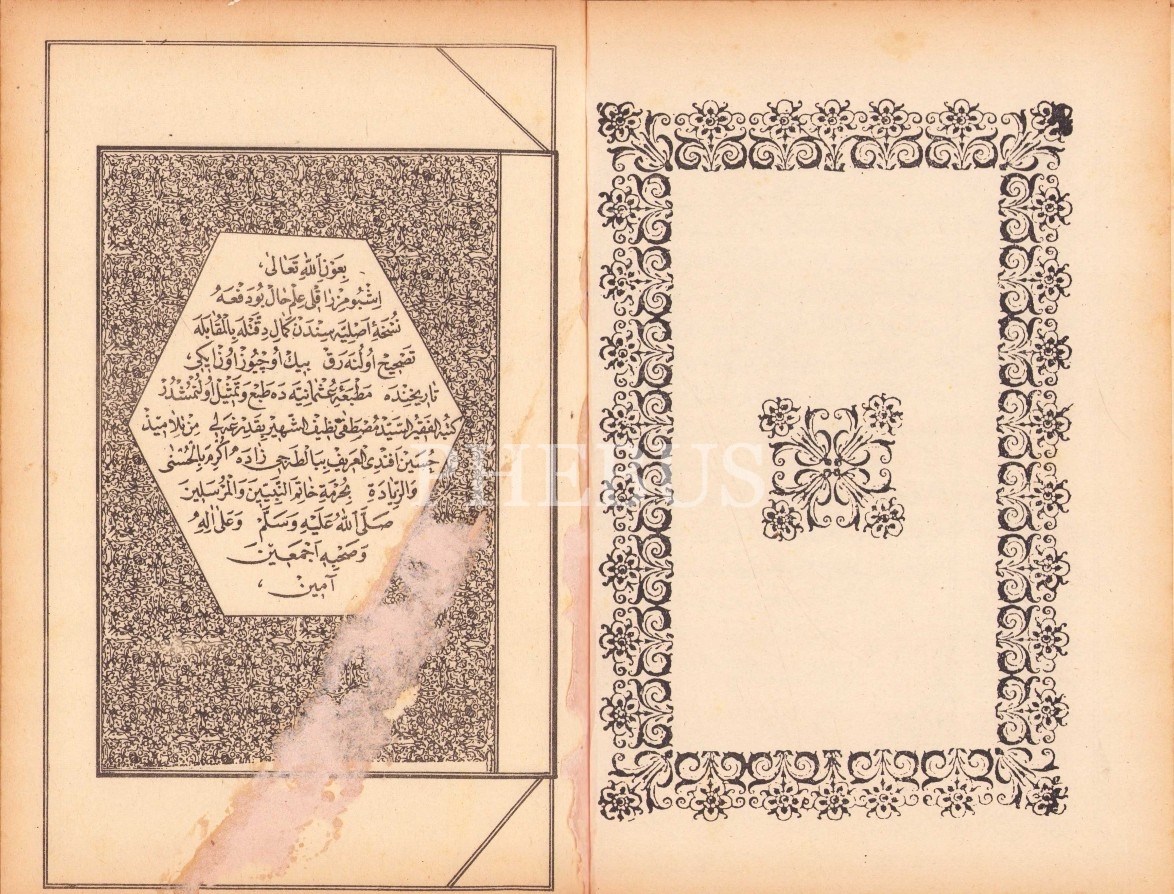 بِعَوْنِ اللهِ تَعَالٰى
اِشْبُو مِرْزَاقْلِى عِلْمِحَال بُودَفْعَهُ
نُسْخَهٔ اَصْلِيَّه سِنْدَنْ كَمَالِ دِقَّتْلَه بِالْمُقَابَلَه
تَصْحِيحْ اُولُنَه رَقْ بِيكْ اُوچْيُوزْ اُوتُزْ اِيكِى
تَارِيخِنْدَه مَطْبَعَهٔ عُثْمَانِيَه دَه طَبْعْ وَتَمْثِيلْ اُولُنْمُشْدُرْ
كَتَبَهُ الْفَقِيرُ السَّيِّدْ مُصْطَفٰى نَظِيفْ الشَّهِيرْ بِقَدِرْغَه لِى مِنْ تَلَامِيذْ
حُسَيْنْ اَفَنْدِى الْعَرِيفْ بِبَالْطَه جِى زَادَه اُكْرِمَ بِالْحُسْنٰى
وَالزِّيَادَةِ بِحُرْمَةِ خَاتَمِ النَّبِيِّينَ وَالْمُرْسَلِينَ
صَلَّى اللهُ عَلَيْهِ وَسَلَّمْ وَعَلٰى اٰلِهِ
وَصَحْبِهِ اَجْمَعِينَ
آمِينْ
PHEBUS